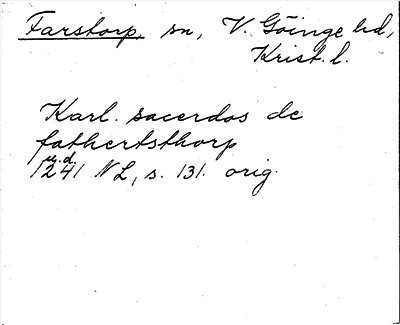 Farstorp, sn, V. Göinge hd,
Krist. l.
Karl. sacerdos de
fathertsthorp
u.d.
1241 NL, s. 131. orig.